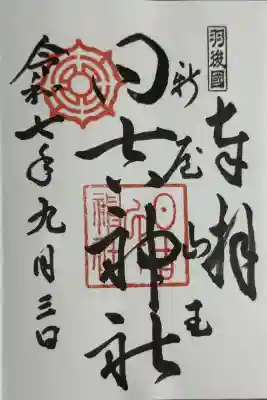 羽後國
奉拝
新屋山王
日吉神社
令和七年九月三日